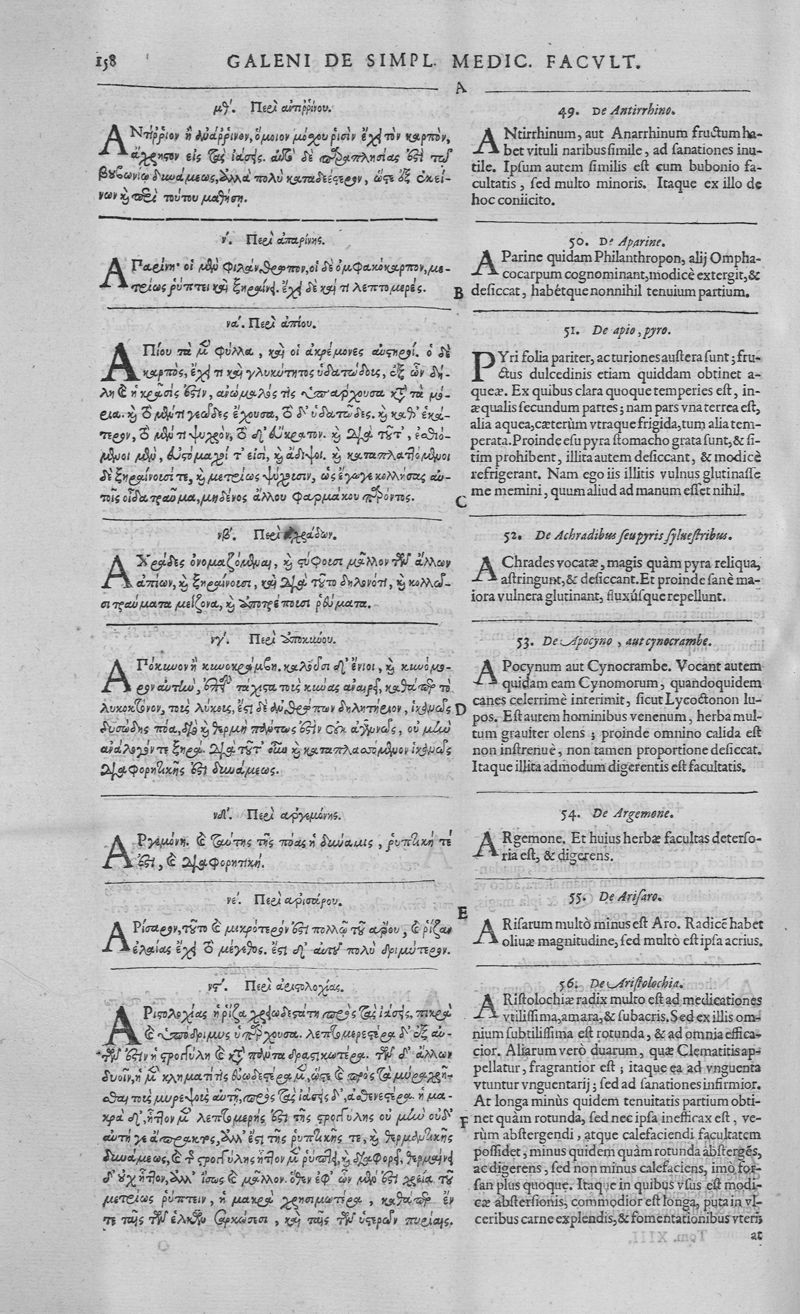 158
GALENI DE SIMPL. MEDIC. FACVLT.
A
μθʹ. Περὶ ἀντιῤῥίνου.
ΑΝτίῤῥινον ἢ ἀνάῤῥινον, ὅμοιον μόσχου ῥισὶν ἔχει τὸν καρπὸν,
ἄχρηστον εἰς τὰς ἰάσεις. αὐτὸ δὲ παραπλησίας ἐστὶ τῷ
βουβωνίῳ δυνάμεως, ἀλλὰ πολὺ καταδεέστερον, ὥστε ἐξ ἐκεί-
νων καὶ περὶ τούτου μαθήσῃ.
νʹ. Περὶ ἀπαρίνης.
ΑΠαρίνη· οἱ μὲν φιλάνθρωπον, οἱ δὲ ὀμφακόκαρπον, με-
τρίως ῥύπτει καὶ ξηραίνει. ἔχει δὲ καί τι λεπτομερές.
ναʹ. Περὶ ἀπίου.
ΑΠίου τὰ μὲν φύλλα, καὶ οἱ ἀκρέμονες αὐστηροί. ὁ δὲ
καρπὸς, ἔχει τι καὶ γλυκύτητος ὑδατώδους, ἐξ ὧν δή-
λη καὶ ἡ κρᾶσίς ἐστιν, ἀνώμαλός τις ὑπάρχουσα κατὰ τὰ μό-
ρια. καὶ τὸ μέν τι γεῶδες ἔχουσα, τὸ δ' ὑδατῶδες. καὶ καθ' ἑκά-
τερον, τὸ μέν τι ψυχρὸν, τὸ δ' εὔκρατον. καὶ διὰ τοῦτ', ἐσθιό-
μενοι μὲν, εὐστόμαχοί τ' εἰσὶ, καὶ ἄδιψοι. καὶ καταπλαττόμενοι
δὲ ξηραίνουσί τε, καὶ μετρίως ψύχουσιν, ὡς ἔγωγε κολλήσας αὐ-
τοῖς οἶδα τραῦμα, μηδενὸς ἄλλου φαρμάκου παρόντος.
νβʹ. Περὶ ἀχράδων.
ΑΧράδες ὀνομαζόμεναι, καὶ στύφουσι μᾶλλον τῶν ἄλλων
ἀπίων, καὶ ξηραίνουσι, καὶ διὰ τοῦτο δηλονότι, καὶ κολλῶ-
σι τραύματα μείζονα, καὶ ἀποτρέπουσι ῥεύματα.
νγʹ. Περὶ ἀποκύνου.
ΑΠόκυνον ἢ κυνοκράμβη. καλοῦσι δ' ἔνιοι, καὶ κυνόμο-
ρον αὐτὴν, ἐπεὶ τάχιστα τοὺς κύνας ἀναιρεῖ, καθάπερ τὸ
λυκοκτόνον, τοὺς λύκους, ἔστι δὲ ἀνθρώπων δηλητήριον, ἱκανῶς
δυσώδης πόα, διὸ καὶ θερμὴ πάντως ἐστὶν οὐκ ἀγεννῶς, οὐ μὴν
ἀνάλογόν τε ξηρά. διὰ τοῦτ' οὖν καὶ καταπλασσόμενον ἱκανῶς
διαφορητικῆς ἐστι δυνάμεως.
νδʹ. Περὶ ἀργεμώνης.
ΑΡγεμώνη. καὶ ταύτης τῆς πόας ἡ δύναμις, ῥυπτική τέ
ἐστι, καὶ διαφορητική.
νεʹ. Περὶ ἀρισάρου.
ΑΡίσαρον, τοῦτο καὶ μικρότερόν ἐστι πολλῷ τοῦ ἄρου, καὶ ῥίζαν
ἐλαίας ἔχει τὸ μέγεθος. ἔστι δ' αὐτοῦ πολὺ δριμύτερον.
νϛʹ. Περὶ ἀριστολοχίας.
ΑΡιστολοχίας ἡ ῥίζα χρειωδεστάτη πρὸς τὰς ἰάσεις, πικρὰ
καὶ ὑπόδριμυς ὑπάρχουσα. λεπτομερεστέρα δ' ἐξ αὐ-
τῶν ἐστὶν ἡ στρογγύλη καὶ κατὰ πάντα δραστικωτέρα. τῶν δ' ἄλλων
δυοῖν, ἡ μὲν κληματῖτις εὐωδεστέρα μὲν, ὥστε καὶ πρὸς τὰ μύρα χρῆ-
σθαι τοὺς μυρεψοὺς αὐτῇ, πρὸς τὰς ἰάσεις δ', ἀσθενεστέρα. ἡ μα-
κρὰ δ', ἧττον μὲν λεπτομερής ἐστι τῆς στρογγύλης οὐ μὴν οὐδ'
αὐτή γε ἄπρακτος, ἀλλ' ἔστι τῆς ῥυπτικῆς τε, καὶ θερμαντικῆς
δυνάμεως, καὶ τῆς στρογγύλης ἧττον μὲν ῥύπτει, καὶ διαφορεῖ, θερμαίνει
δ' οὐχ ἧττον, ἀλλ' ἴσως καὶ μᾶλλον. ὅθεν ἐφ' ὧν μέν ἐστι χρεία τοῦ
μετρίως ῥύπτειν, ἡ μακρὰ χρησιμωτέρα, καθάπερ ἔν
τε ταῖς τῶν ἑλκῶν σαρκώσεσι, καὶ ταῖς τῶν ὑστερῶν πυρίαις.
B
C
D
E
F
49. De Antirrhino.
ANtirrhinum, aut Anarrhinum fructum ha-
bet vituli naribus simile, ad sanationes inu-
tile. Ipsum autem similis est cum bubonio fa-
cultatis, sed multo minoris. Itaque ex illo de
hoc coniicito.
50. De Aparine.
APARINE quidam Philanthropon, alij Ompha-
cocarpum cognominant, modicè extergit, &
desiccat, habétque nonnihil tenuium partium.
51. De apio, pyro.
PYri folia pariter, ac turiones austera sunt; fru-
ctus dulcedinis etiam quiddam obtinet a-
queæ. Ex quibus clara quoque temperies est, in-
æqualis secundum partes; nam pars vna terrea est,
alia aquea, cæterùm vtraque frigida, tum alia tem-
perata. Proinde esu pyra stomacho grata sunt, & si-
tim prohibent, illita autem desiccant, & modicè
refrigerant. Nam ego iis illitis vulnus glutinasse
me memini, quum aliud ad manum esset nihil.
52. De Achradibus seu pyris sylvestribus.
AChrades vocatæ, magis quàm pyra reliqua,
astringunt, & desiccant. Et proinde sanè ma-
iora vulnera glutinant, fluxúsque repellunt.
53. De Apocyno, aut cynocrambe.
APocynum aut Cynocrambe. Vocant autem
quidam eam Cynomorum, quandoquidem
canes celerrimè interimit, sicut Lycoctonon lu-
pos. Est autem hominibus venenum, herba mul-
tum grauiter olens; proinde omnino calida est
non instrenuè, non tamen proportione desiccat.
Itaque illita admodum digerentis est facultatis.
54. De Argemone.
ARgemone. Et huius herbæ facultas deterso-
ria est, & digerens.
55. De Arisaro.
ARisarum multò minus est Aro. Radicē habet
oliuæ magnitudine, sed multò est ipsa acrius.
56. De Aristolochia.
ARistolochiæ radix multo est ad medicationes
vtilissima, amara, & subacris. Sed ex illis om-
nium subtilissima est rotunda, & ad omnia effica-
cior. Aliarum verò duarum, quæ Clematitis ap-
pellatur, fragrantior est; itaque ea ad vnguenta
vtuntur vnguentarij; sed ad sanationes infirmior.
At longa minùs quidem tenuitatis partium obti-
net quàm rotunda, sed nec ipsa inefficax est, ve-
rùm abstergendi, atque calefaciendi facultatem
possidet, minus quidem quàm rotunda abstergēs,
ac digerens, sed non minus calefaciens, imò for-
san plus quoque. Itaque in quibus vsus est modi-
cæ abstersionis, commodior est longa, puta in vl-
ceribus carne explendis, & fomentationibus vteris
at